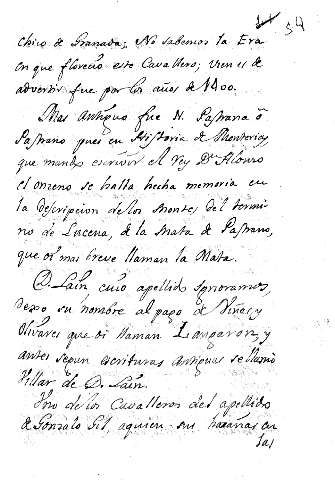 54
chico de Granada; No sabemos la Era
en que florecio este Cavallero; vien es de
advertir fue por los años de 1400.
Mas Antiguo fue N. Pastrana ô
Pastrano pues en Historia de Monterias,
que mando escrivir el Rey Dn. Alonso
el onzeno se halla hecha memoria en
la descripcion de los Montes del termi
no de Lucena, de la Mata de Pastrano,
que oi mas breve llaman la Mata.
D. Laín cuio apellido ygnoramos,
dexo su nombre al pago de Viñas, y
Olivares que oi llaman Langaron, y
antes segun escrituras Antiguas se llamo
Villar de D. Laín.
Uno de los Cavalleros del apellido
de Gonzalo Gil, aquien sus hazañas en
las